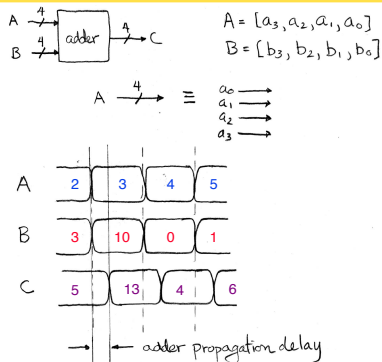 A 4
B 4
adder
4 C
A = [a₃, a₂, a₁, a₀]
B = [b₃, b₂, b₁, b₀]
A 4 ≡ a₀
a₁
a₂
a₃
A 2 3 4 5
B 3 10 0 1
C 5 13 4 6
adder propagation delay